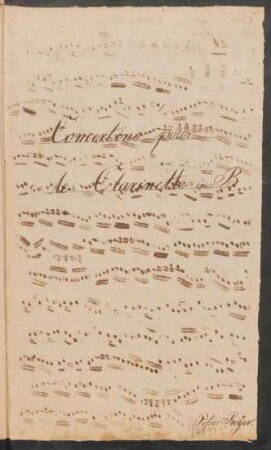 Concertono pour
le Clarinette in B